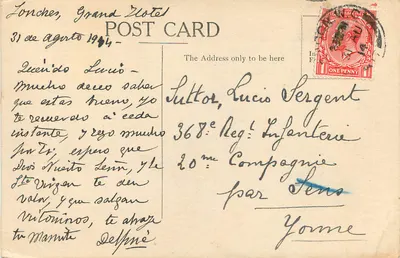 Londres, Grand Hotel
31 de Agosto 1914
POST CARD
The Address only to be here
Querido Lucio
Mucho deseo saber
que estas bueno, yo
te recuerdo á cada
instante, y rezo mucho
por ti, espero que
Dios Nuestro Señor, y la
Ste Virgen te den
valor, y que salgan
victoriosos, te abraza
tu Mamita
Delphine
Suttor, Lucio Sergent
368e Regt Infanterie
20me Compagnie
par Sens
Yonne
ONE PENNY